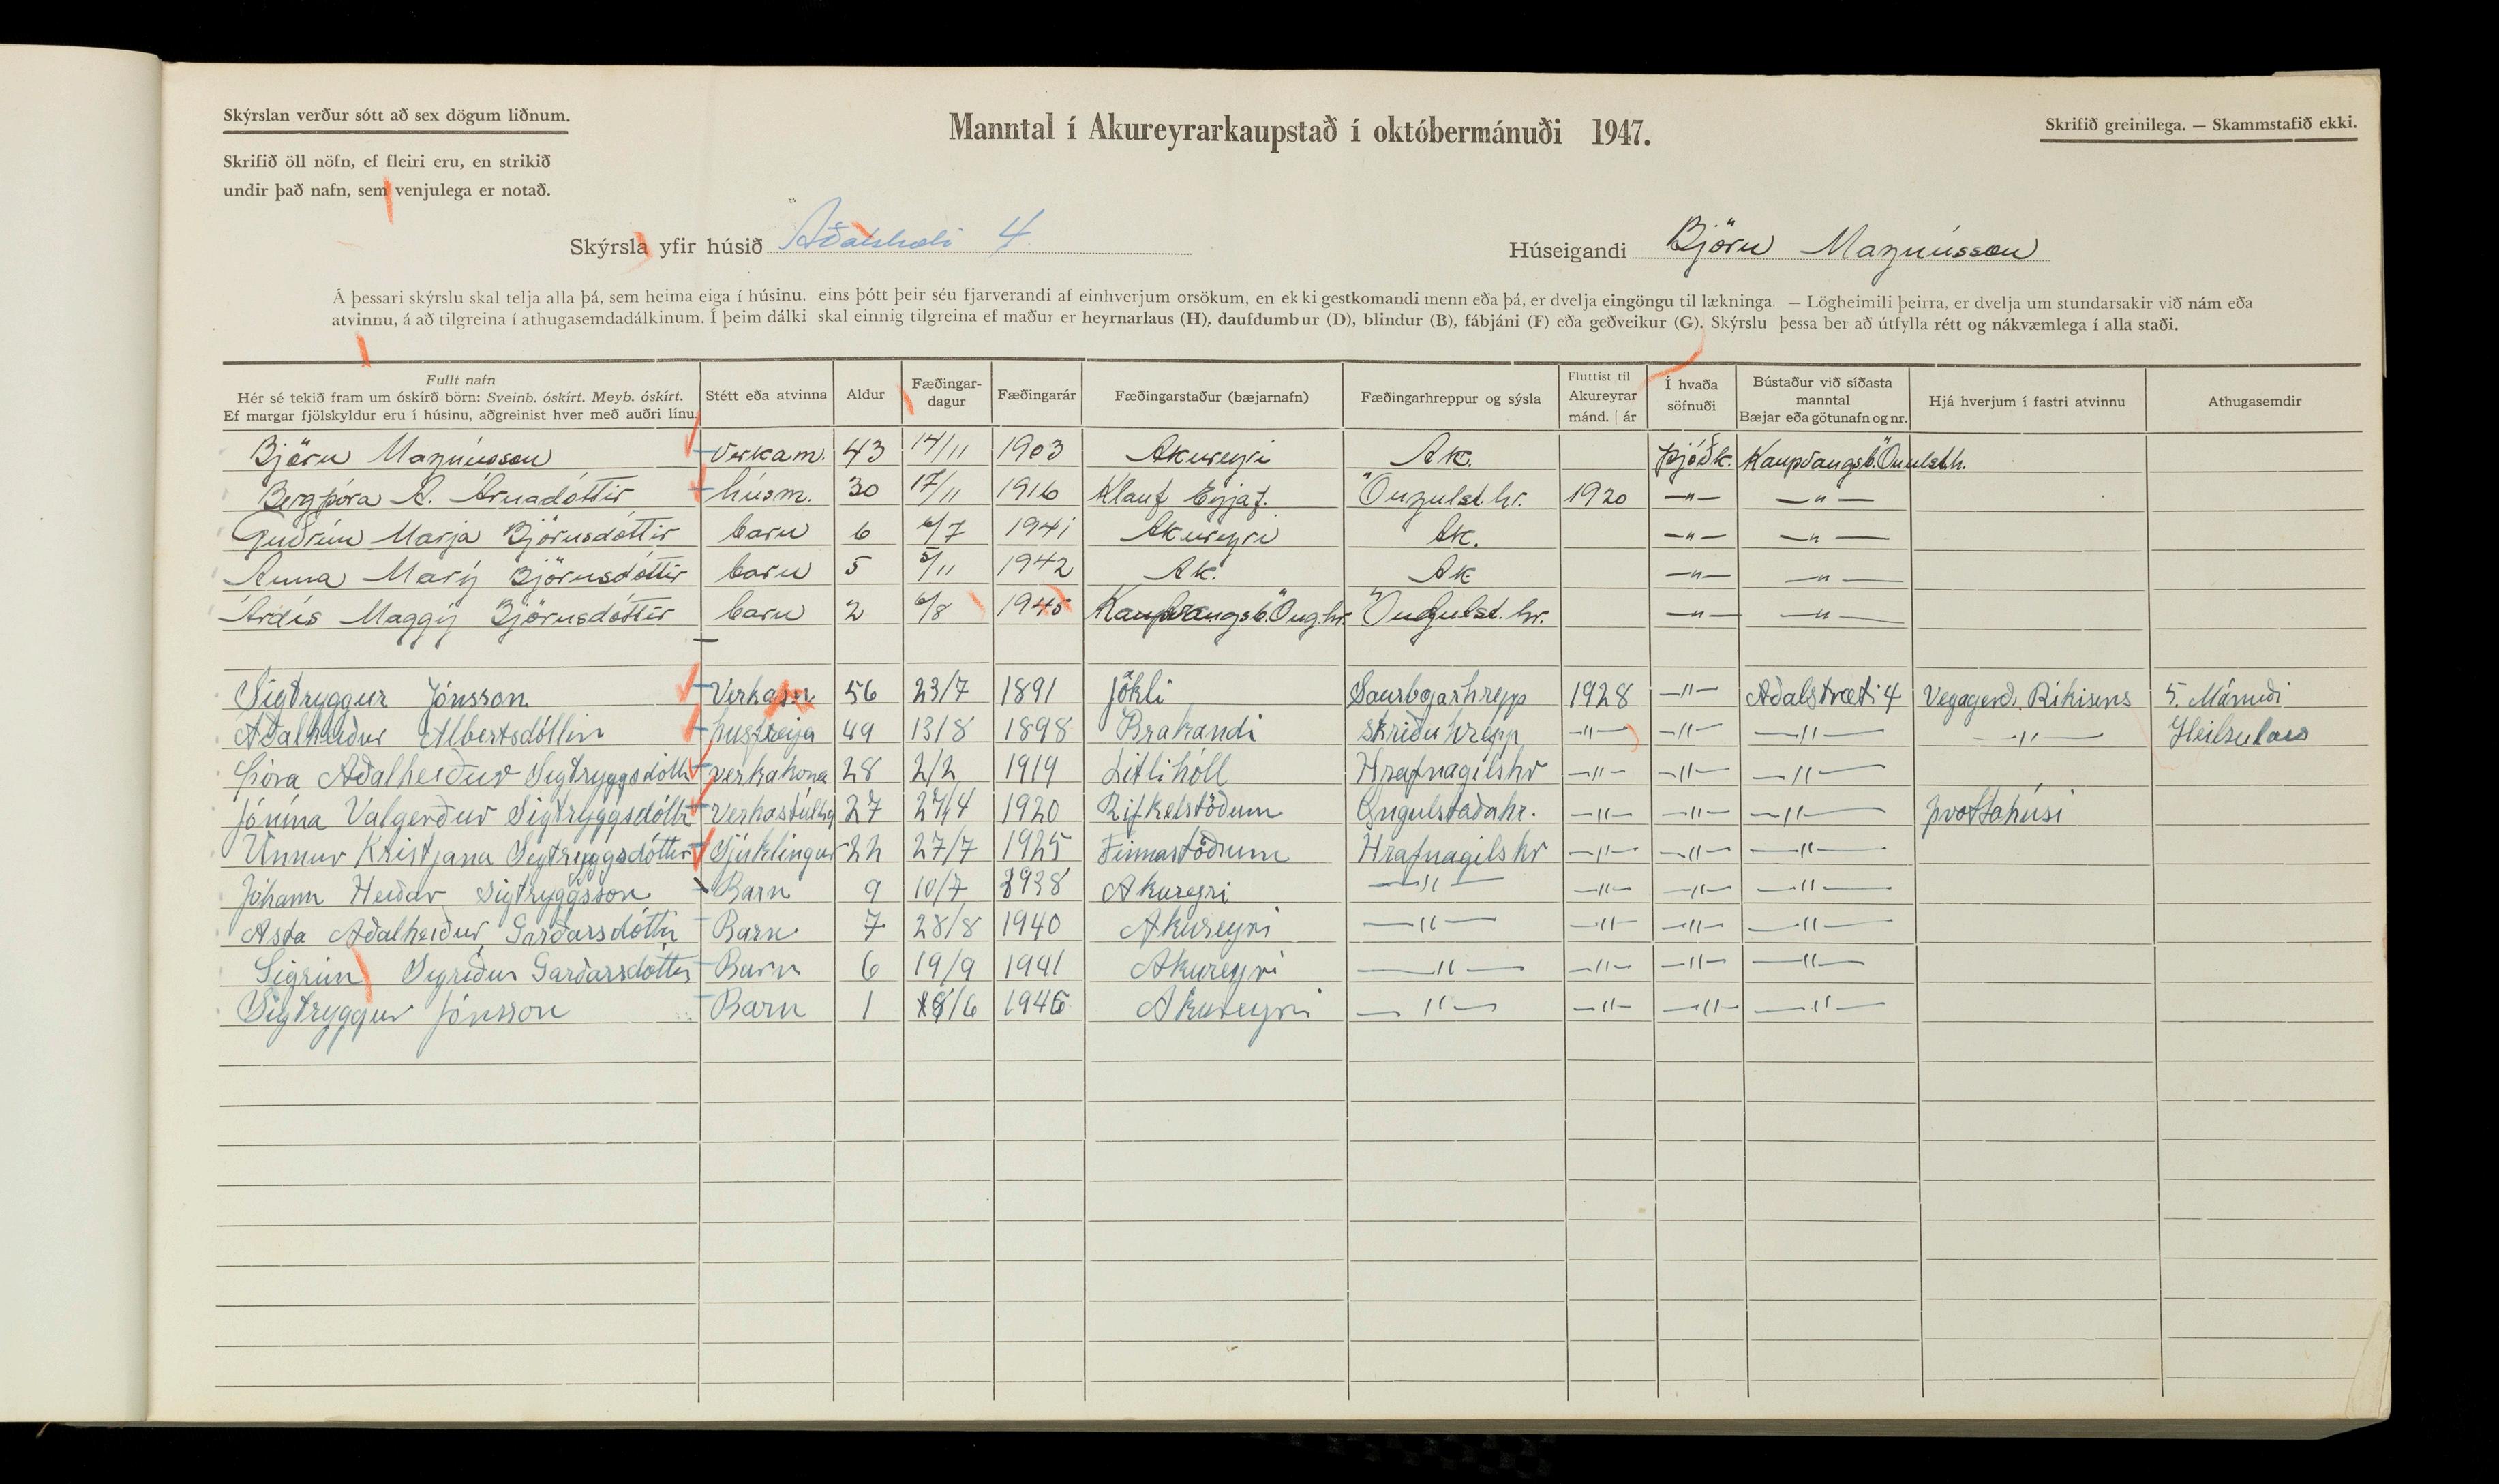 Skýrslan verður sótt að sex dögum liðnum.
Manntal í Akureyrarkaupstað í októbermánuði 1947.
Skrifið greinilega. — Skammstafið ekki.
Skrifið öll nöfn, ef fleiri eru, en strikið
undir það nafn, sem venjulega er notað.
Skýrsla yfir húsið 4 Húseigandi Björn Magnússon
Á þessari skýrslu skal telja alla þá, sem heima eiga í húsinu, eins þótt þeir séu fjarverandi af einhverjum orsökum, en ekki gestkomandi menn eða þá, er dvelja eingöngu til lækninga. — Lögheimili þeirra, er dvelja um stundarsakir við nám eða
atvinnu, á að tilgreina í athugasemdadálkinum. Í þeim dálki skal einnig tilgreina ef maður er heyrnarlaus (H), daufdumbur (D), blindur (B), fábjáni (F) eða geðveikur (G). Skýrslu þessa ber að útfylla rétt og nákvæmlega í alla staði.
Fullt nafn
Hér sé tekið fram um óskírð börn: Sveinb. óskírt. Meyb. óskírt.
Ef margar fjölskyldur eru í húsinu, aðgreinist hver með auðri línu.
Stétt eða atvinna
Aldur
Fæðingar-
dagur
Fæðingarár
Fæðingarstaður (bæjarnafn)
Fæðingarhreppur og sýsla
Fluttist til
Akureyrar
mánd. | ár
Í hvaða
söfnuði
Bústaður við síðasta
manntal
Bæjar eða götunafn og nr.
Hjá hverjum í fastri atvinnu
Athugasemdir
Björn Magnússon Verkam. 43 /11 1903 Akureyri Ak. Þjóðk.
Bergþóra Á. Árnadóttir húsm. 30 17/11 1916 Klauf Eyjaf. Öngulst.hr. 1920 —"— —"—
Guðrún Marja Björnsdóttir barn 6 6/7 1941 Akureyri Ak. —"— —"—
Anna Marý Björnsdóttir barn 5 5/11 1942 Ak. Ak —"— —"—
Árdís Maggý Björnsdóttir barn 2 6/8 1945 Kaupvangsb. Öng.hr. Öngulst. hr. —"— —"—
Sigtryggur Jónsson Verkam 56 23/7 1891 Jökli Saurbæjarhrepp 1928 —"— Aðalstræti 4 Vegagerð. Ríkisens 5. Mánuði
Aðalheiður Albertsdóttir húsfreyja 49 13/8 1898 Brakandi Skriðuhrepp —"— —"— —"— —"— Heilsulaus
Þóra Aðalheiður Sigtryggsdótti verkakona 28 2/2 1919 Litlihóll Hrafnagilshr —"— —"— —"—
Jónína Valgerður Sigtryggsdóttir Verkastúlka 27 27/4 1920 Rifkelstöðum Öngulstaðahr. —"— —"— —"— Þvottahúsi
Unnur Kristjana Sigtryggsdóttir Sjúklingur 22 27/7 1925 Finnastöðum Hrafnagilshr —"— —"— —"—
Jóhann Heiðar Sigtryggsson Barn 9 10/7 1938 Akureyri —"— —"— —"— —"—
Ásta Aðalheiður Garðarsdóttir Barn 7 28/8 1940 Akureyri —"— —"— —"— —"—
Sigrún Sigríður Garðarsdóttir Barn 6 19/9 1941 Akureyri —"— —"— —"— —"—
Sigtryggur Jónsson Barn 1 18/6 1946 Akureyri —"— —"— —"— —"—